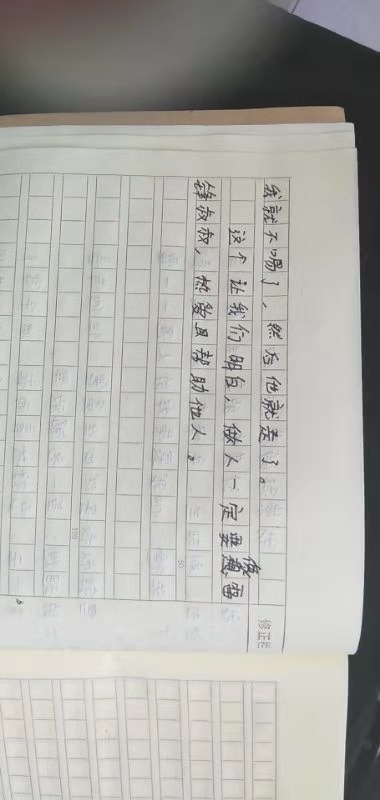 我就不喝了，然后他就走了。
这个让我们明白，做人一定要像雷
锋叔叔，热爱且帮助他人。
修正栏
50
100